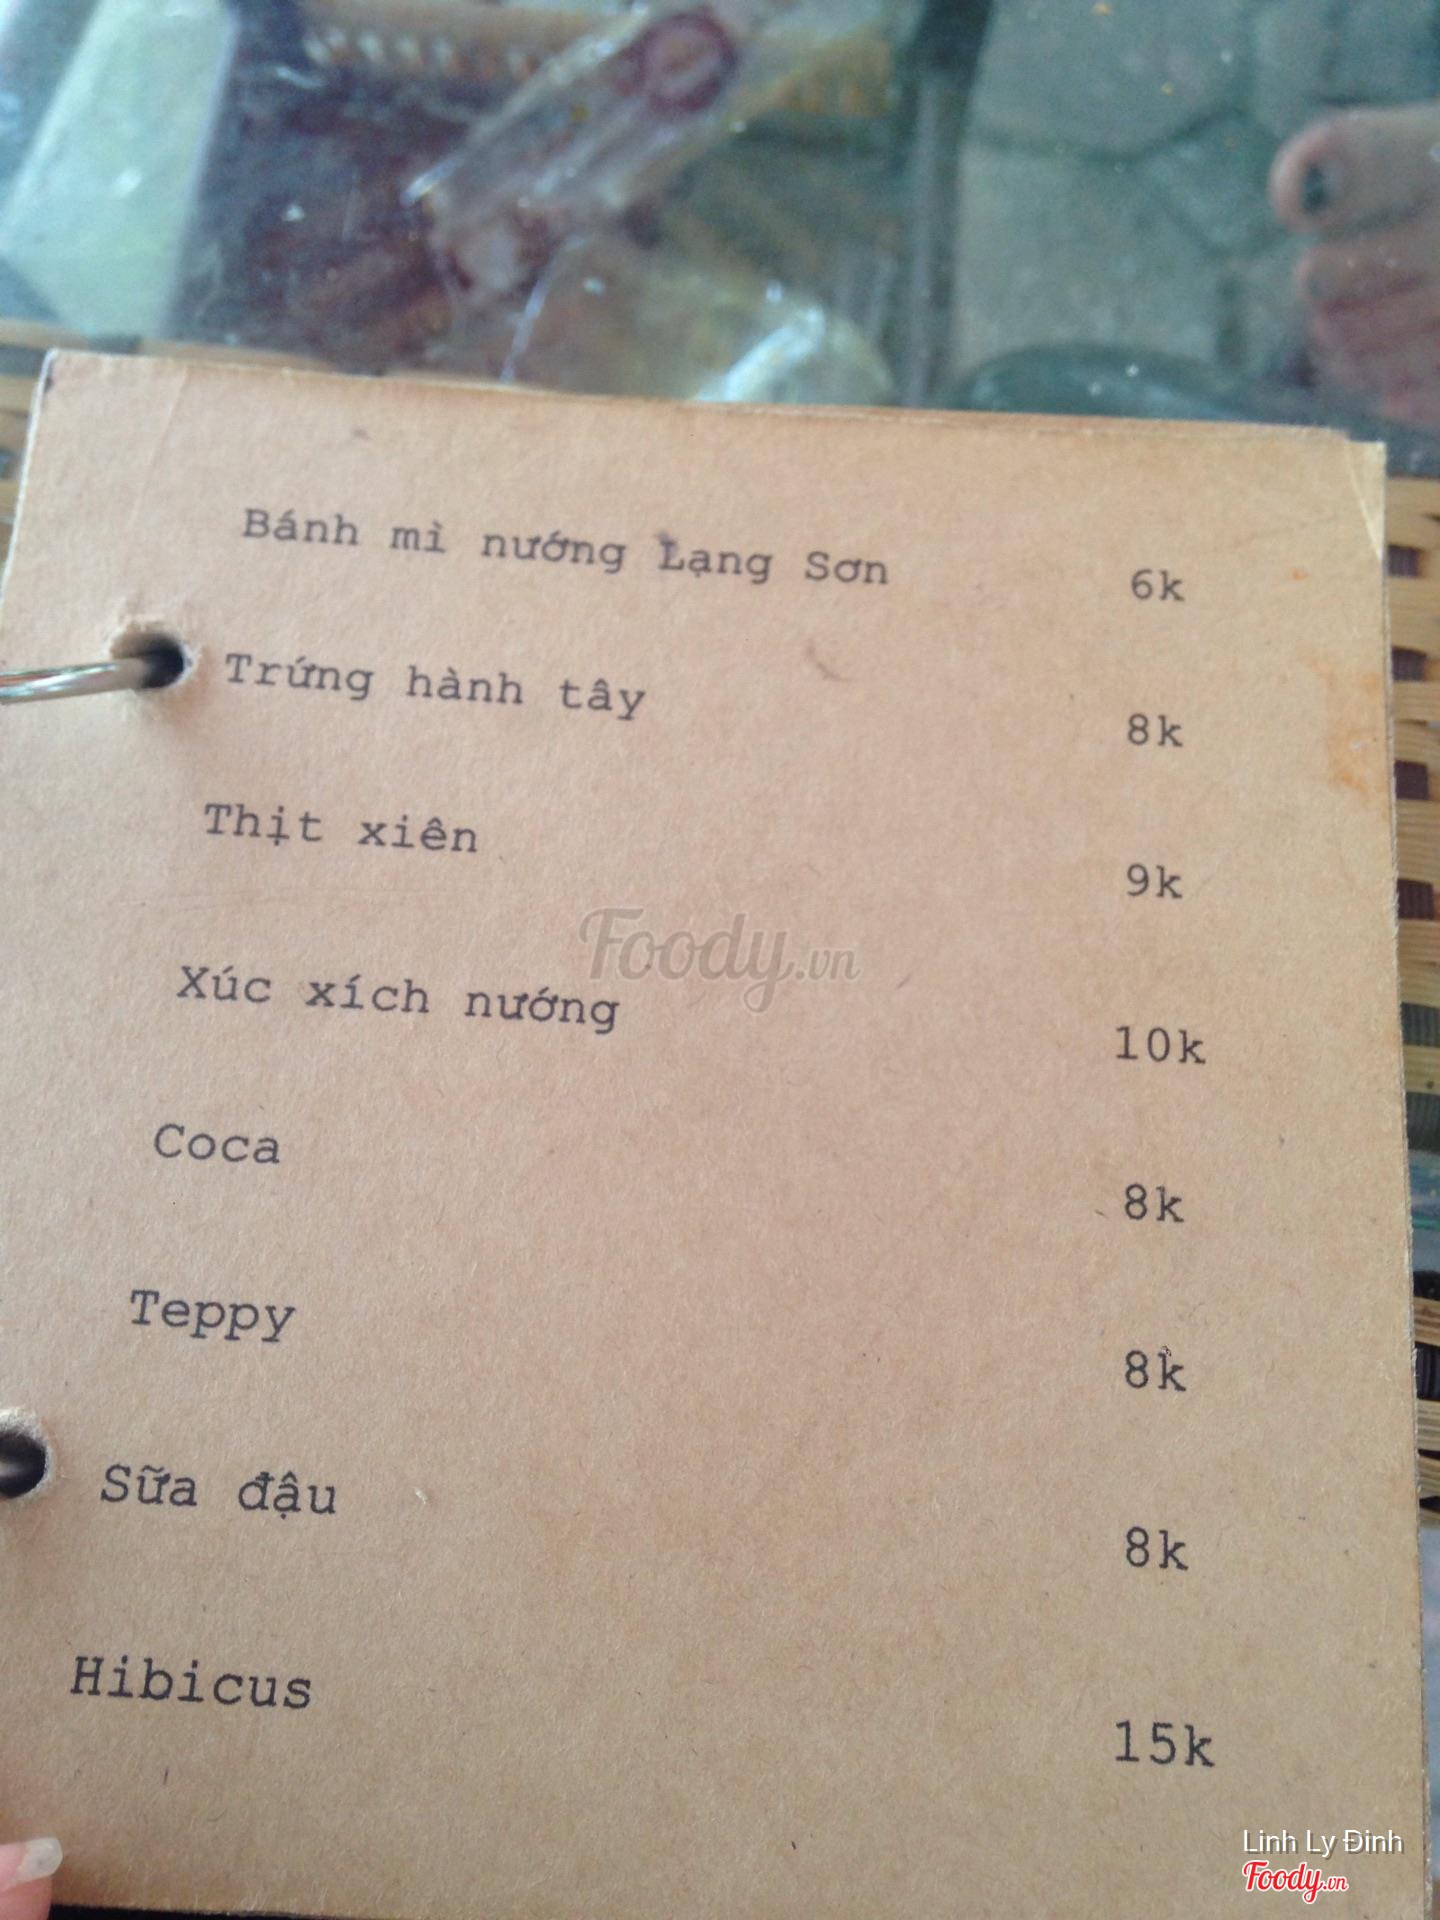 Bánh mì nướng Lạng Sơn 6k
Trứng hành tây 8k
Thịt xiên 9k
Foody.vn
Xúc xích nướng 10k
Coca 8k
Teppy 8k
Sữa đậu 8k
Hibicus 15k
Linh Ly Đinh
Foody.vn